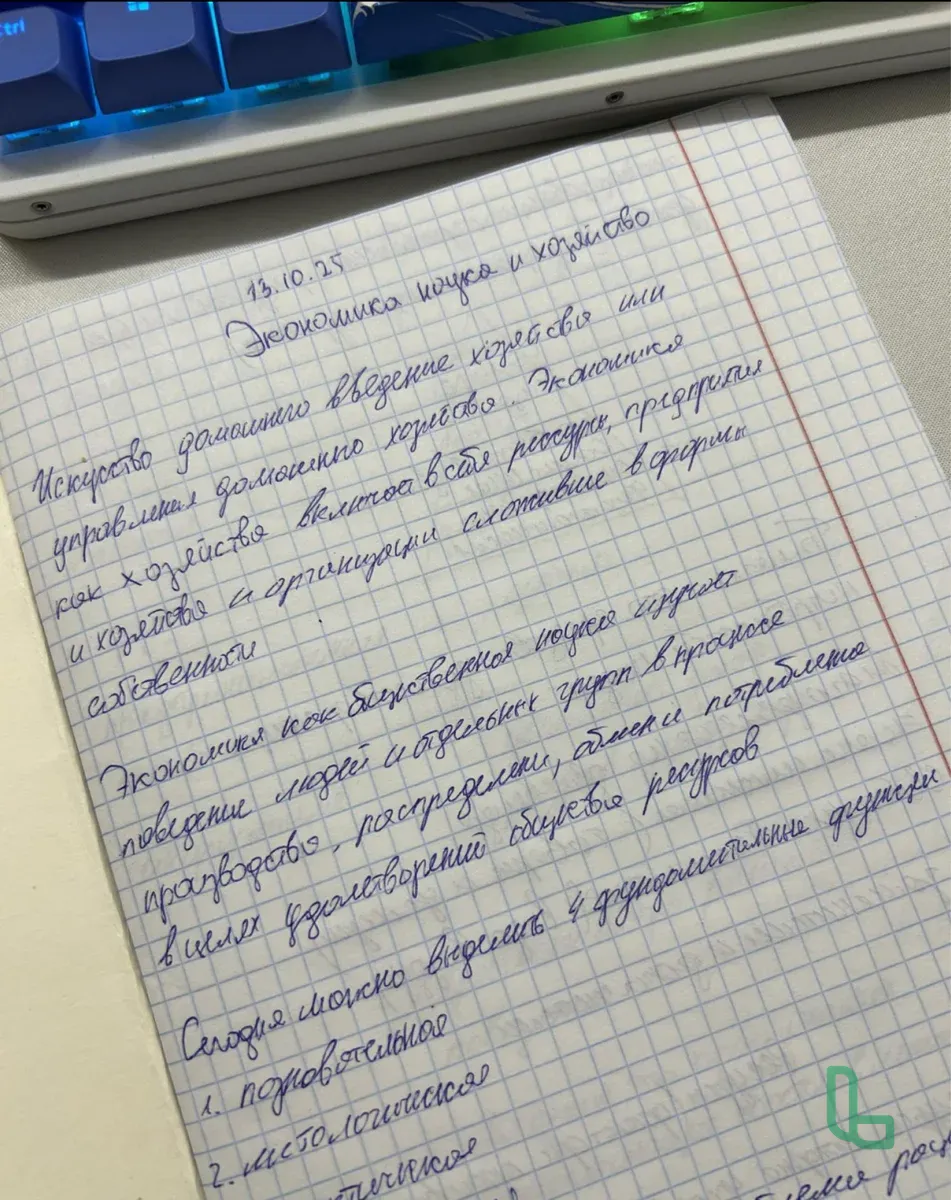 Ctrl
13.10.25
Экономика наука и хозяйство
Искусство домашнего введение хозяйства или
управления домашнего хозяйства. Экономика
как хозяйства включает в себя ресурсы, предприятия
и хозяйства и организации сложившие в формы
собственности
Экономика как бщественная наука изучает
поведение людей и отдельных групп в процессе
производства, распределени, обмен и потребления
в целях удолетворений общества ресурсов
Сегодня можно выделить 4 фундоментальные функции
1. позновотельноя
2. мстологическоя
тическоя